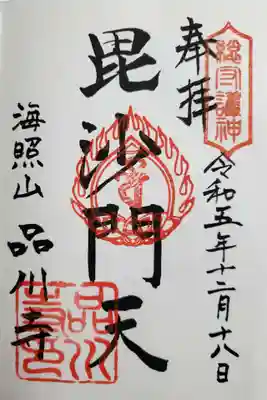 奉拝
令和五年十二月十八日
毘沙門天
海照山 品川寺
品川
寺印